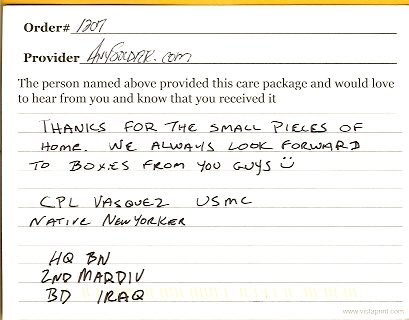 Order# 1207
Provider AnySoldier.com
The person named above provided this care package and would love
to hear from you and know that you received it
THANKS FOR THE SMALL PIECES OF
HOME. WE ALWAYS LOOK FORWARD
TO BOXES FROM YOU GUYS
CPL VASQUEZ USMC
NATIVE NEWYORKER
HQ BN
2ND MARDIV
BD IRAQ
www.vistaprint.com